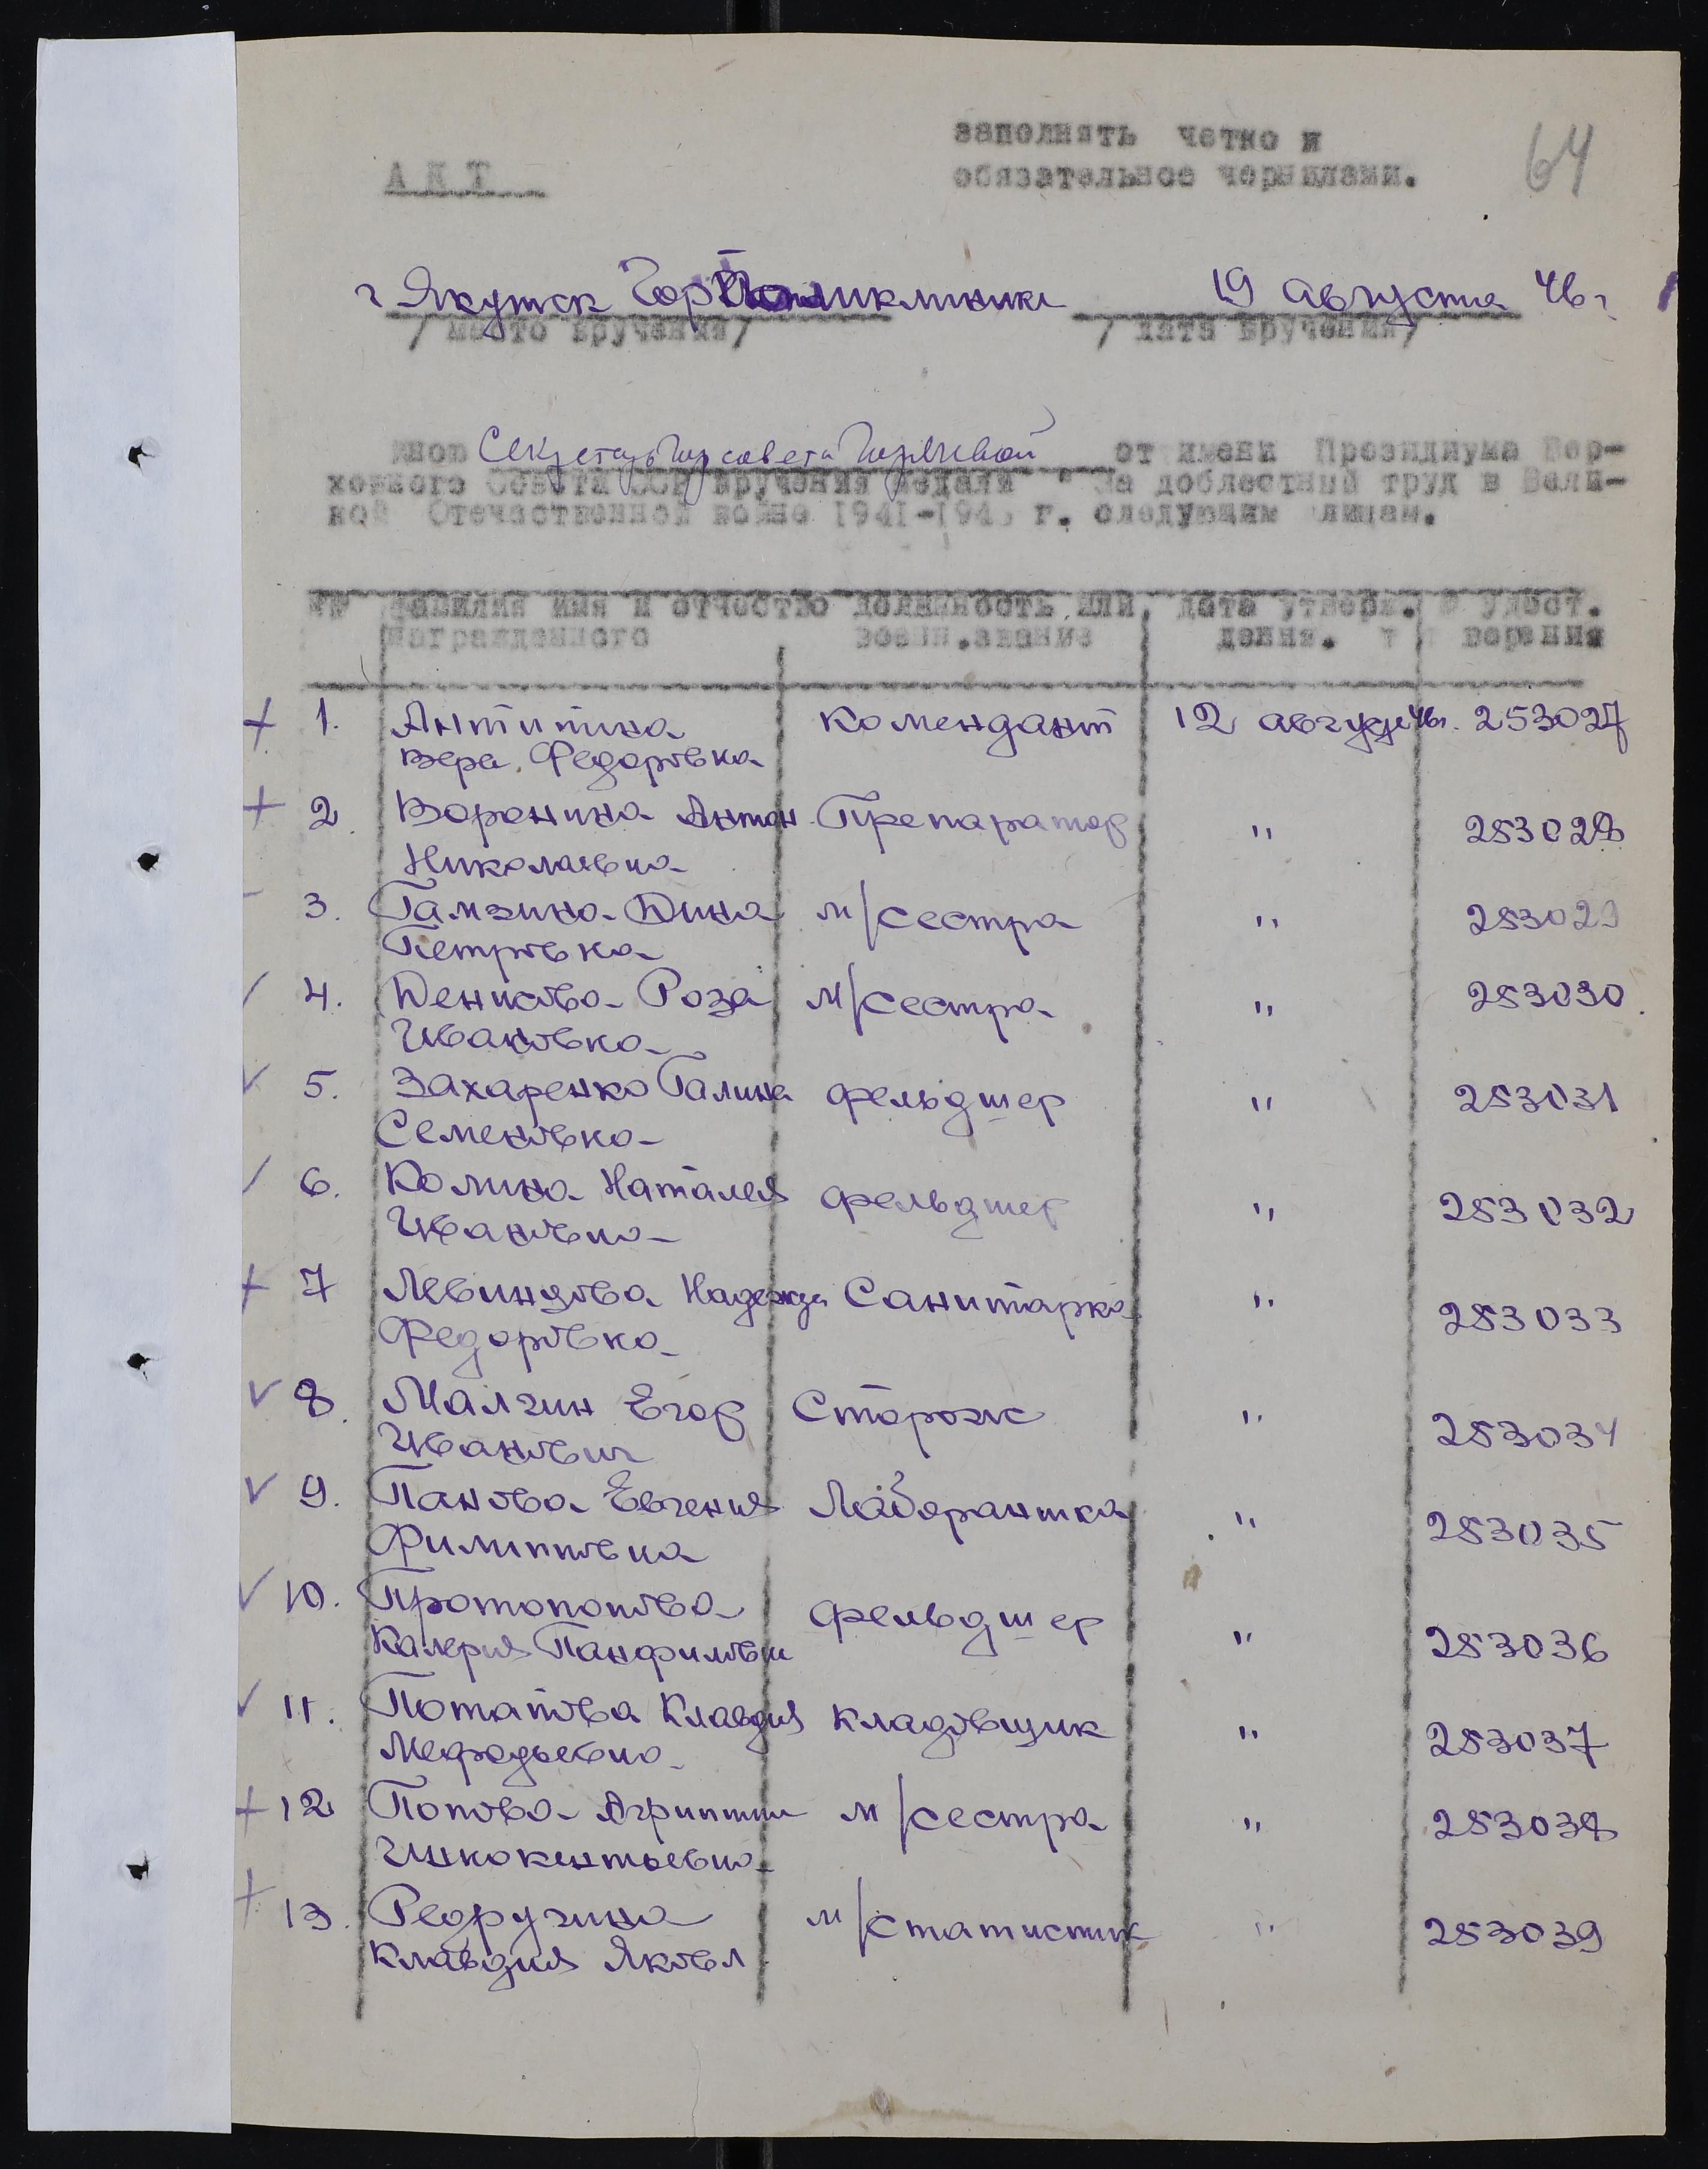 заполнять четко и
АКТ
обязательное чернилами.
64
г Якутск Горполиклиника 19 августа 46 г
/ место вручения/ / дата вручения/
мною Секретарь Горсовета от имени Президиума Вер-
ховного Совета СССР вручения медали " За доблестный труд в Вели-
кой Отечественной войне 1941-1945 г. следующим лицам.
№№ фамилия имя и отчество должность или дата утверж. № удост.
награжденного воен.звание дения. верения
+ 1. Антипина комендант 12 август 46г. 253027
Вера Федоровна
+ 2. Воронина Антон Препаратор " 253028
Николаевна
3. Гамзина Дина м/сестра " 253029
Петровна
4. Денисова Роза м/сестра " 253030
Ивановна
5. Захаренко Галина фельдшер " 253031
Семеновна
6. Колина Наталея фельдшер " 253032
Ивановна
+ 7 Левинцова Надежда Санитарка " 253033
Федоровна
8. Малгин Егор Сторож " 253034
Иванович
9. Панова Евгения Лаборантка " 253035
Филипповна
10. Протопопова фельдшер " 253036
Калерия Панфиловн
11. Потапова Клавдия кладовщик " 253037
Мефодьевна
+ 12 Попова Агриппин м/сестра " 253038
Инокентьевна
+ 13. Редругина м/статистик " 253039
Клавдия Яковл